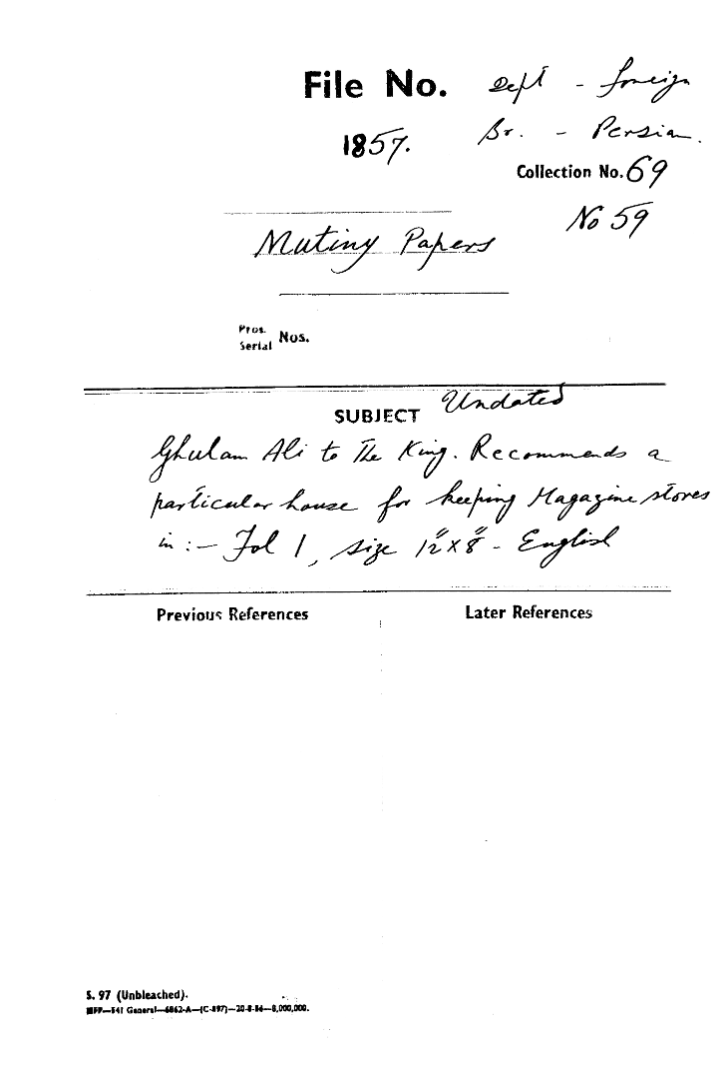 File No. Dept - Foreign
1857. Br. - Persian.
Collection No. 69
No 59
Mutiny Papers
Pros. Serial Nos.
SUBJECT Undated
Ghulam Ali to The King. Recommends a
particular house for keeping Magazine stores
in :- Fol 1, size 12"x8" - English
Previous References Later References
S. 97 (Unbleached).
MFP—541 General—6862-A—(C-897)—20-8-54—8,000,000.